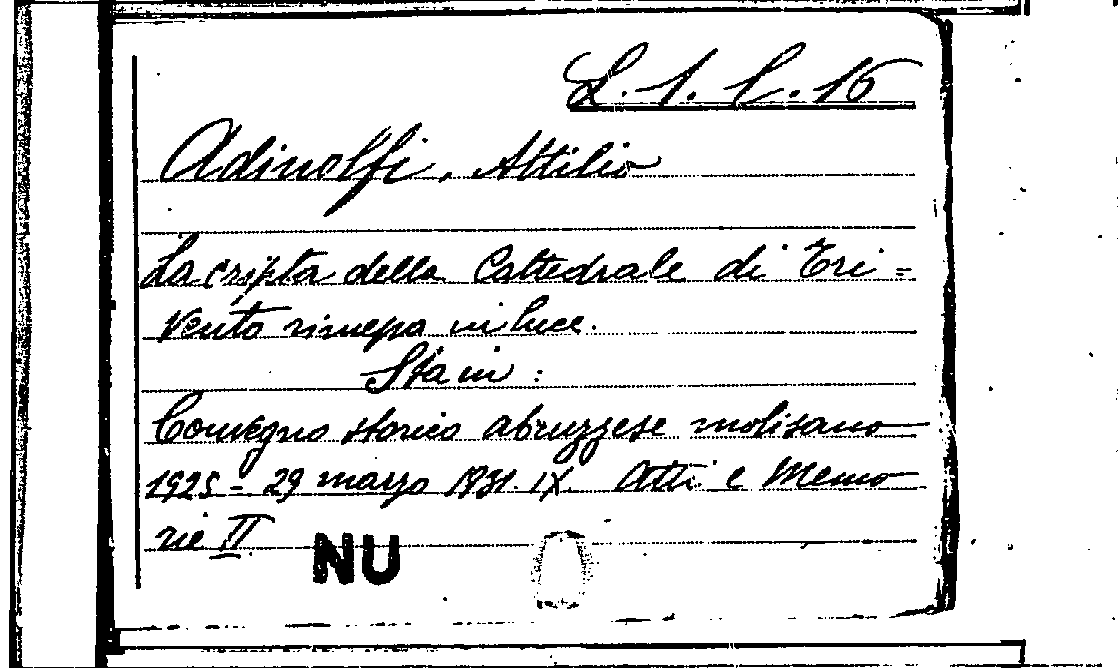 L. 1. C. 16
Adinolfi, Attilio
La cripta della Cattedrale di Tri=
vento rimessa in luce.
Sta in:
Convegno storico abruzzese molisano
1925 - 29 marzo 1931. IX. Atti e Memo
rie II
NU